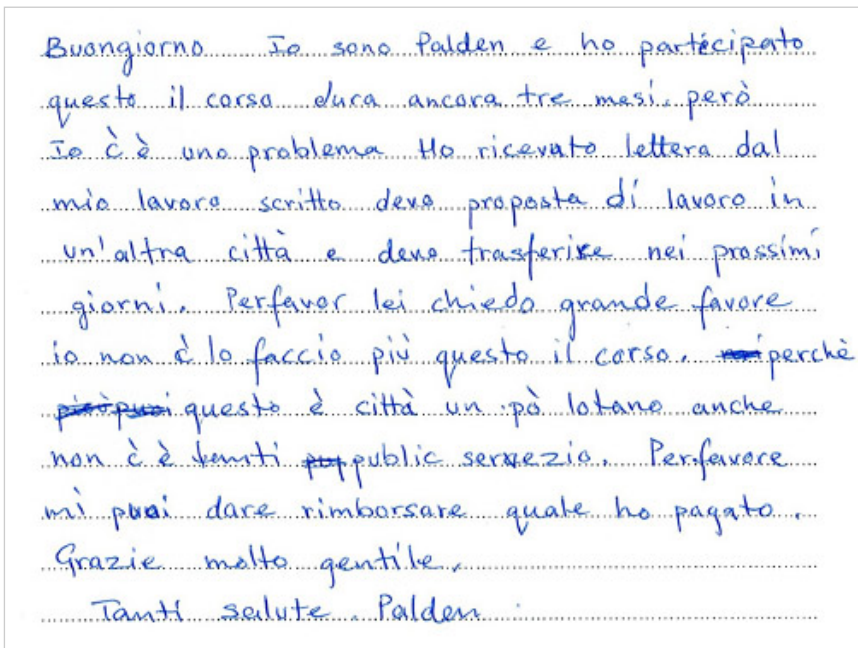 Buongiorno Io sono Palden e ho partecipato
questo il corso dura ancora tre mesi. però
Io c'è uno problema Ho ricevuto lettera dal
mio lavoro scritto devo proposta di lavoro in
un'altra città e devo trasferire nei prossimi
giorni. Perfavor lei chiedo grande favore
io non c'è lo faccio più questo il corso. perchè
questo è città un pò lotano anche
non c'è public servezio. Perfavore
mi puoi dare rimborsare quale ho pagato.
Grazie molto gentile.
Tanti salute. Palden